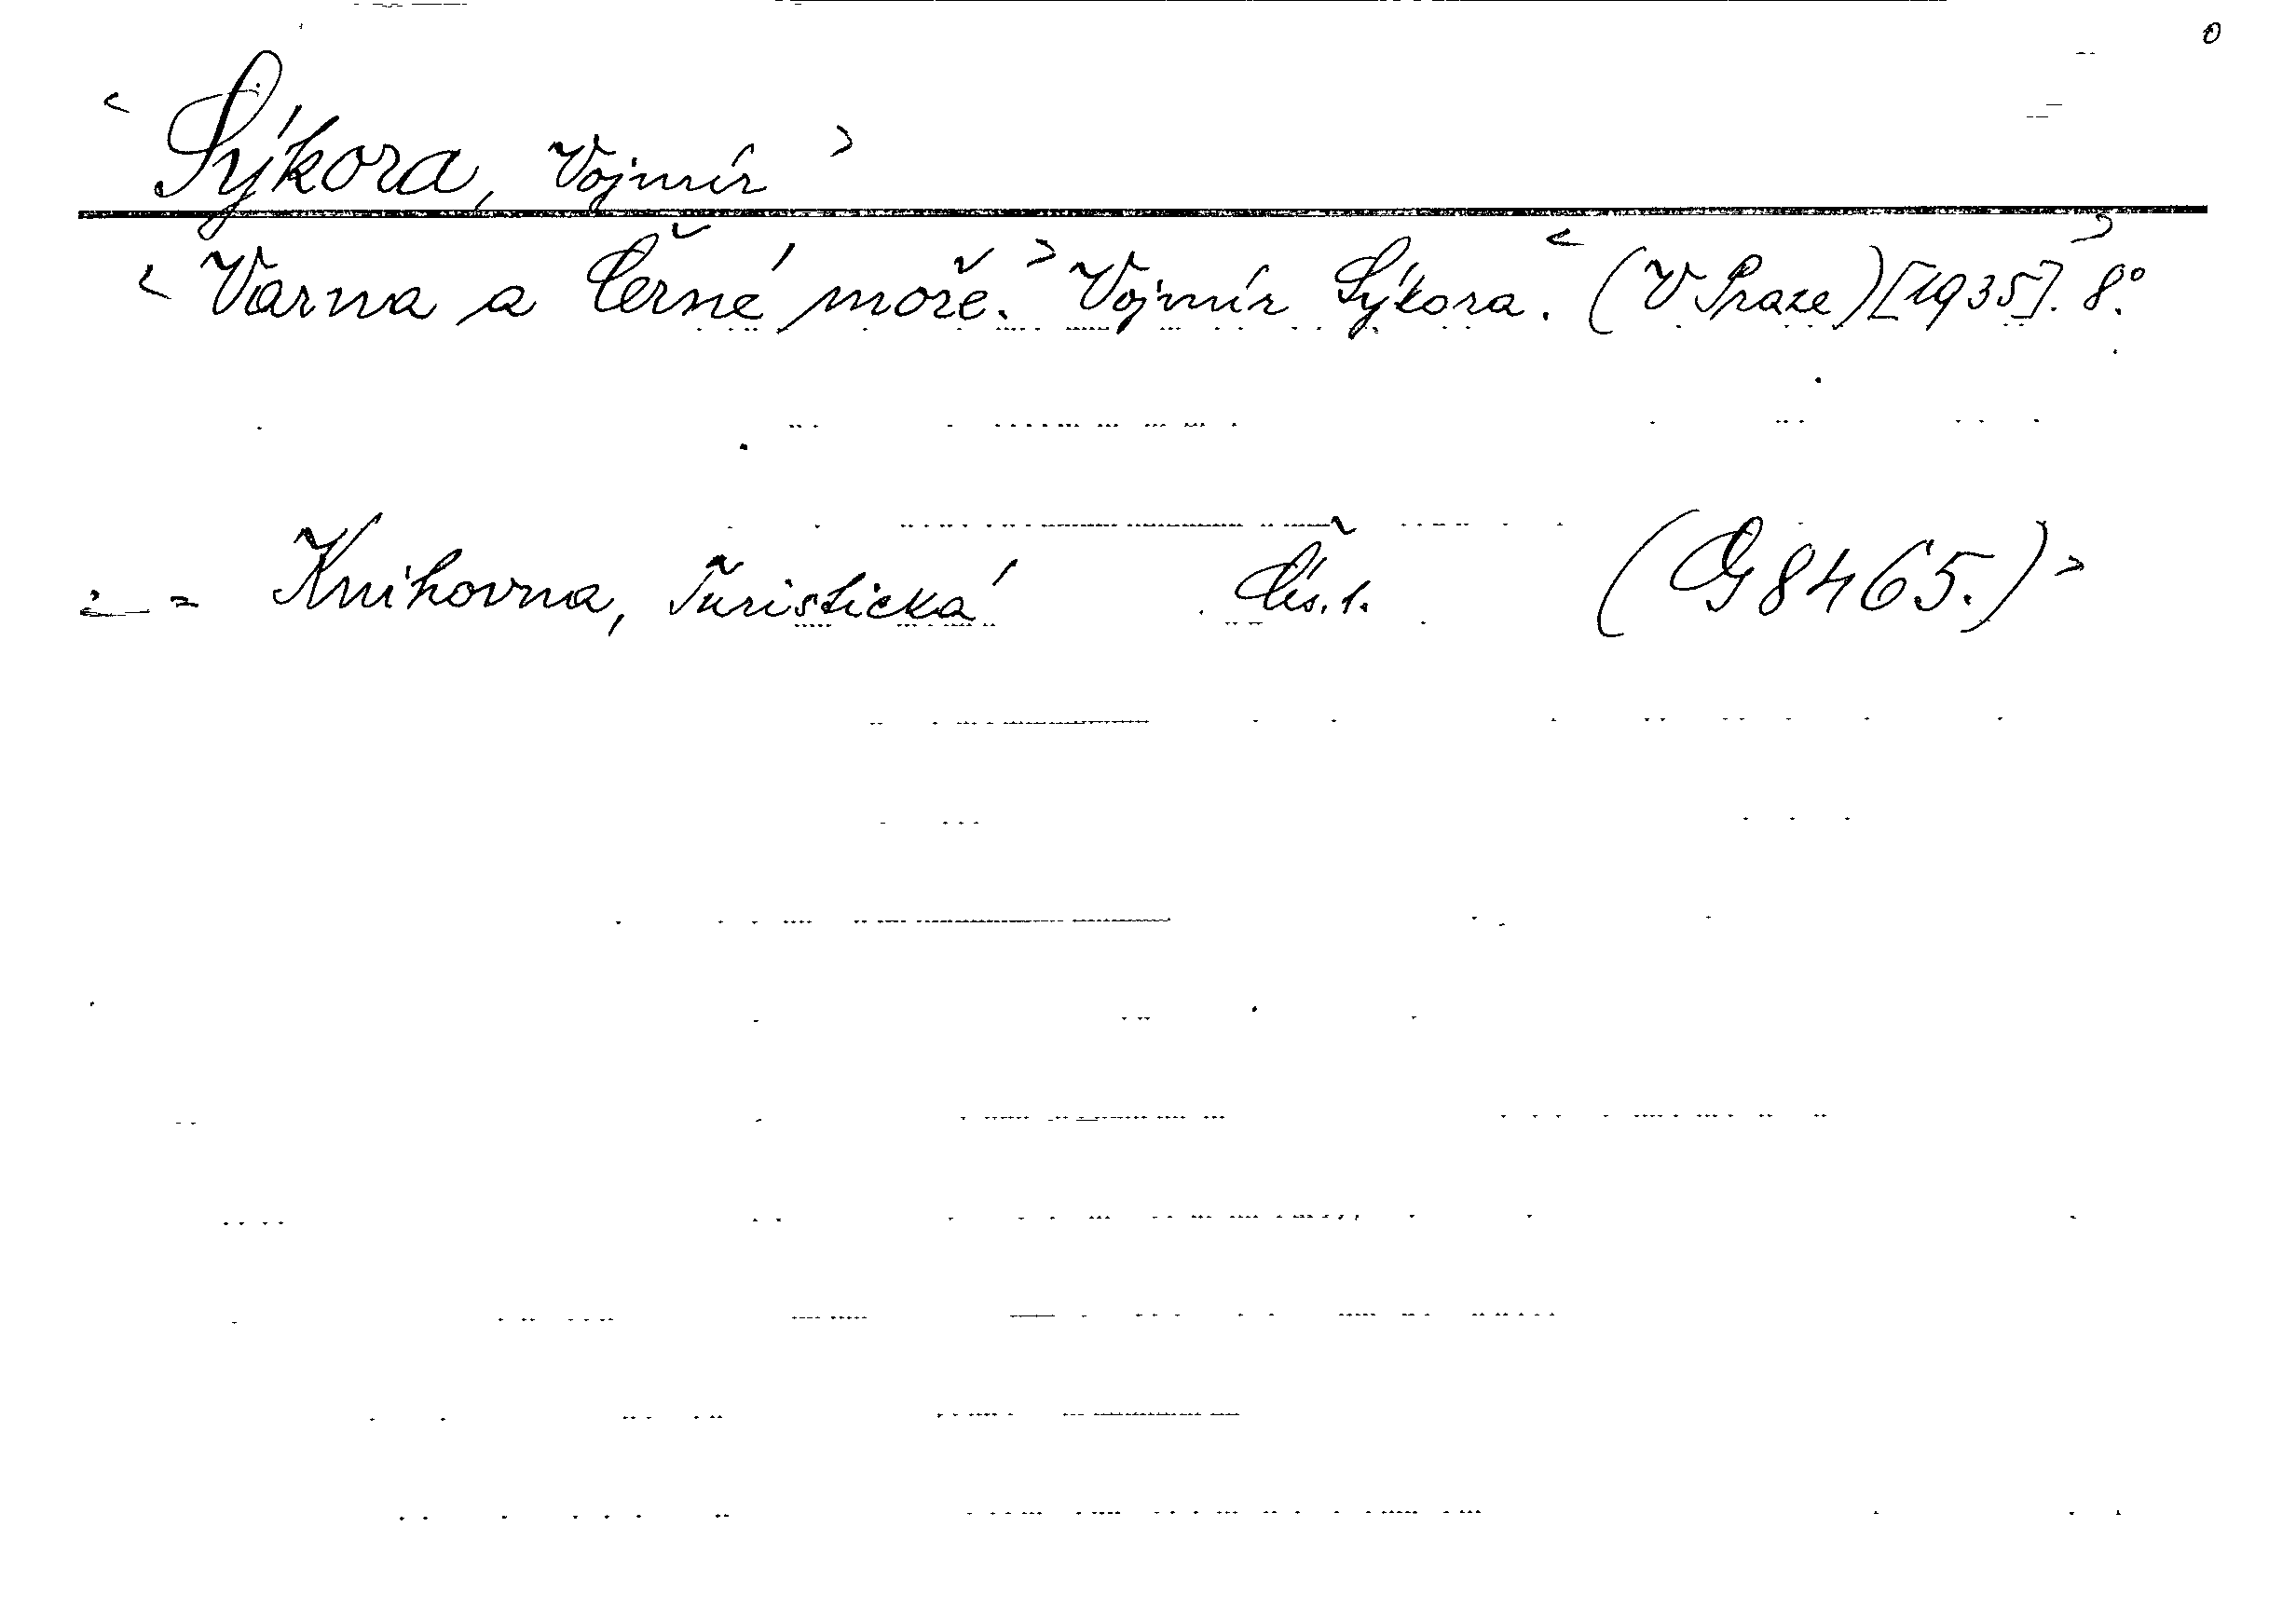 0
< Sýkora, Vojmír >
< Varna a Černé moře. > Vojmír Sýkora. < (V Praze) [1935]. > 8.°
= Knihovna, Turistická Čís. 1. (G 8465.) >